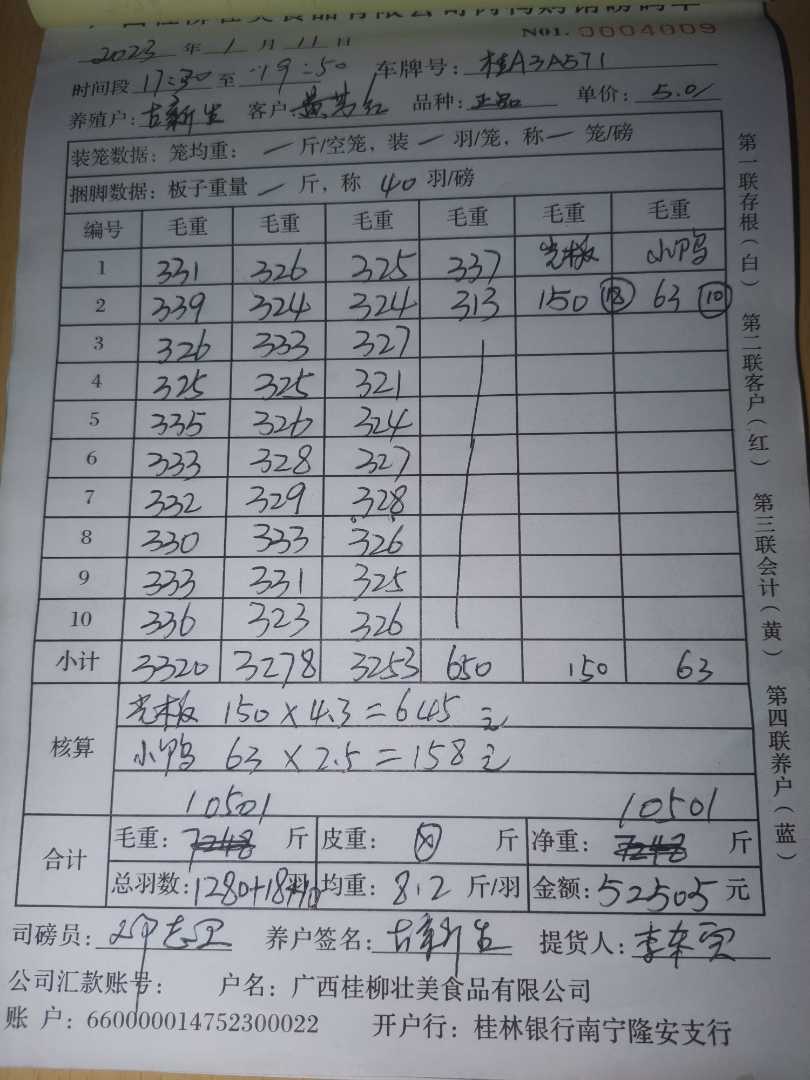 广西桂柳壮美食品有限公司肉鸭购销磅码单
2023 年 1 月 11 日 NO1. 0004009
时间段 17:30 至 19:50 车牌号: 桂A3A571
养殖户: 古新生 客户 品种: 正品 单价: 5.0/
装笼数据: 笼均重: — 斤/空笼, 装 — 羽/笼, 称 — 笼/磅
捆脚数据: 板子重量 — 斤, 称 40 羽/磅
编号 毛重 毛重 毛重 毛重 毛重 毛重
1 331 326 325 337 光板 小鸭
2 339 324 324 313 150 (18) 63 (10)
3 326 333 327
4 325 325 321
5 335 326 324
6 333 328 327
7 332 329 328
8 330 333 326
9 333 331 325
10 336 323 326
小计 3320 3278 3253 650 150 63
核算 光板 150 × 4.3 = 645 元
小鸭 63 × 2.5 = 158 元
10501 10501
合计 毛重: 7248 斤 皮重: 斤 净重: 7248 斤
总羽数: 1280+18+10 均重: 8.2 斤/羽 金额: 52505 元
司磅员: 养户签名: 古新生 提货人:
公司汇款账号: 户名: 广西桂柳壮美食品有限公司
账 户: 660000014752300022 开户行: 桂林银行南宁隆安支行
第一联存根(白) 第二联客户(红) 第三联会计(黄) 第四联养户(蓝)